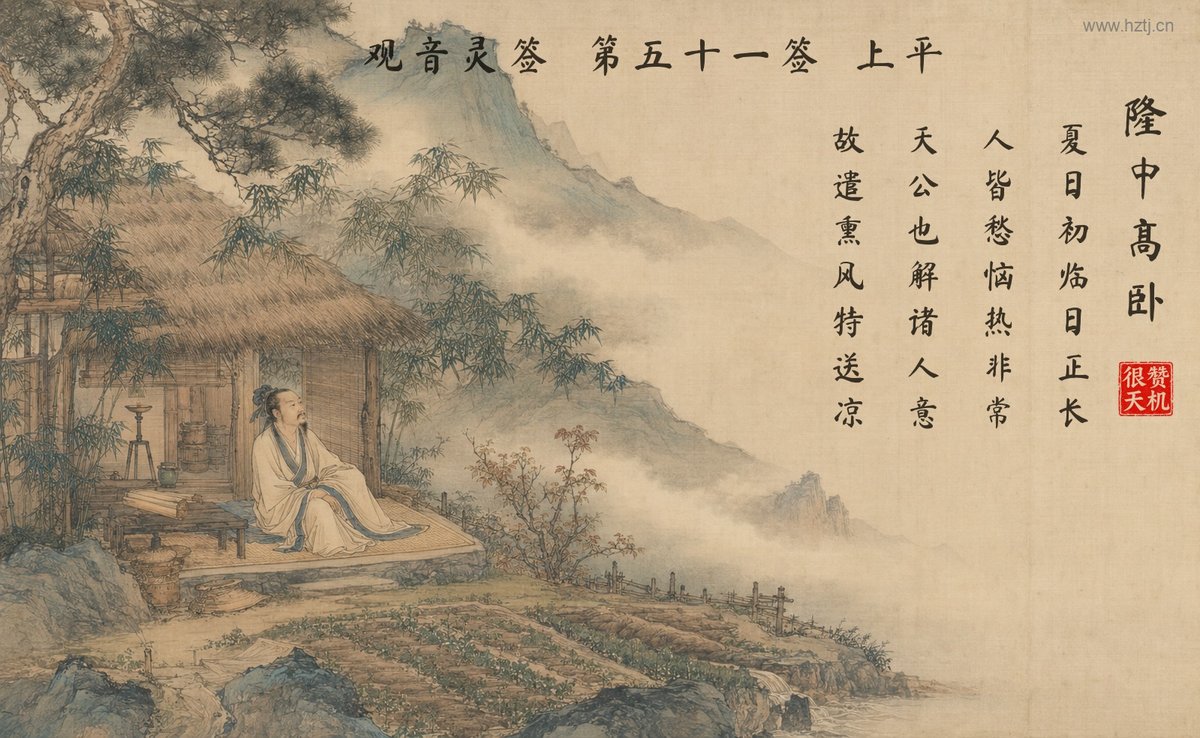 www.hztj.cn
观音灵签 第五十一签 上平
隆中高卧
夏日初临日正长
人皆愁恼热非常
天公也解诸人意
故遣熏风特送凉
赞机很天